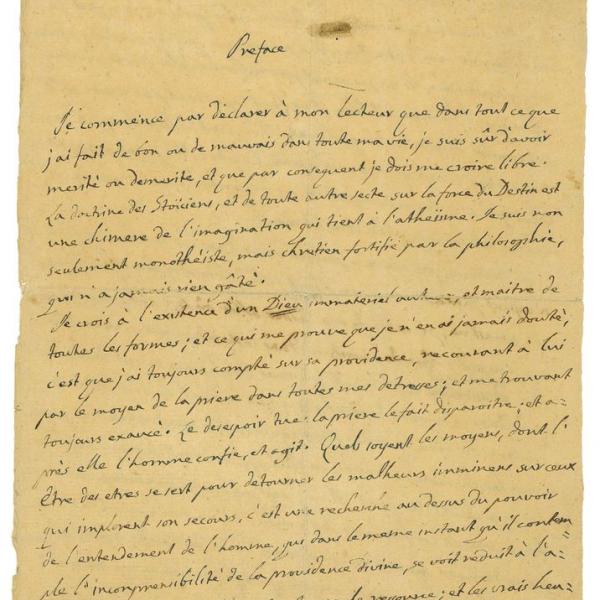 Preface
Je commence par déclarer à mon lecteur que dans tout ce que
j'ai fait de bon ou de mauvais dans toute ma vie, je suis sûr d'avoir
merité ou demerite, et que par consequent je dois me croire libre.
La doctrine des Stoïciens, et de toute autre secte sur la force du Destin est
une chimere de l'imagination qui tient à l'atheïsme. Je suis non
seulement monothéiste, mais chretien fortifié par la philosophie,
qui n'a jamais rien gâté.
Je crois à l'existence d'un Dieu immateriel auteur, et maitre de
toutes les formes; et ce qui me prouve que je n'en ai jamais douté,
c'est que j'ai toujours compté sur sa providence, recourant à lui
par le moyen de la prière dans toutes mes detresses; et me trouvant
toujours exaucé. Le desespoir tue: la prière le fait disparoitre; et a-
près elle l'homme confie, et agit. Quels soyent les moyens, dont l'
Être des etres se sert pour detourner les malheurs imminens sur ceux
qui implorent son secours, c'est une recherche au dessus du pouvoir
de l'entendement de l'homme, qui dans le meme instant qu'il contem
ple l'incomprensibilité de la providence divine, se voit réduit à l'a-
ressource; et les vrais heu-